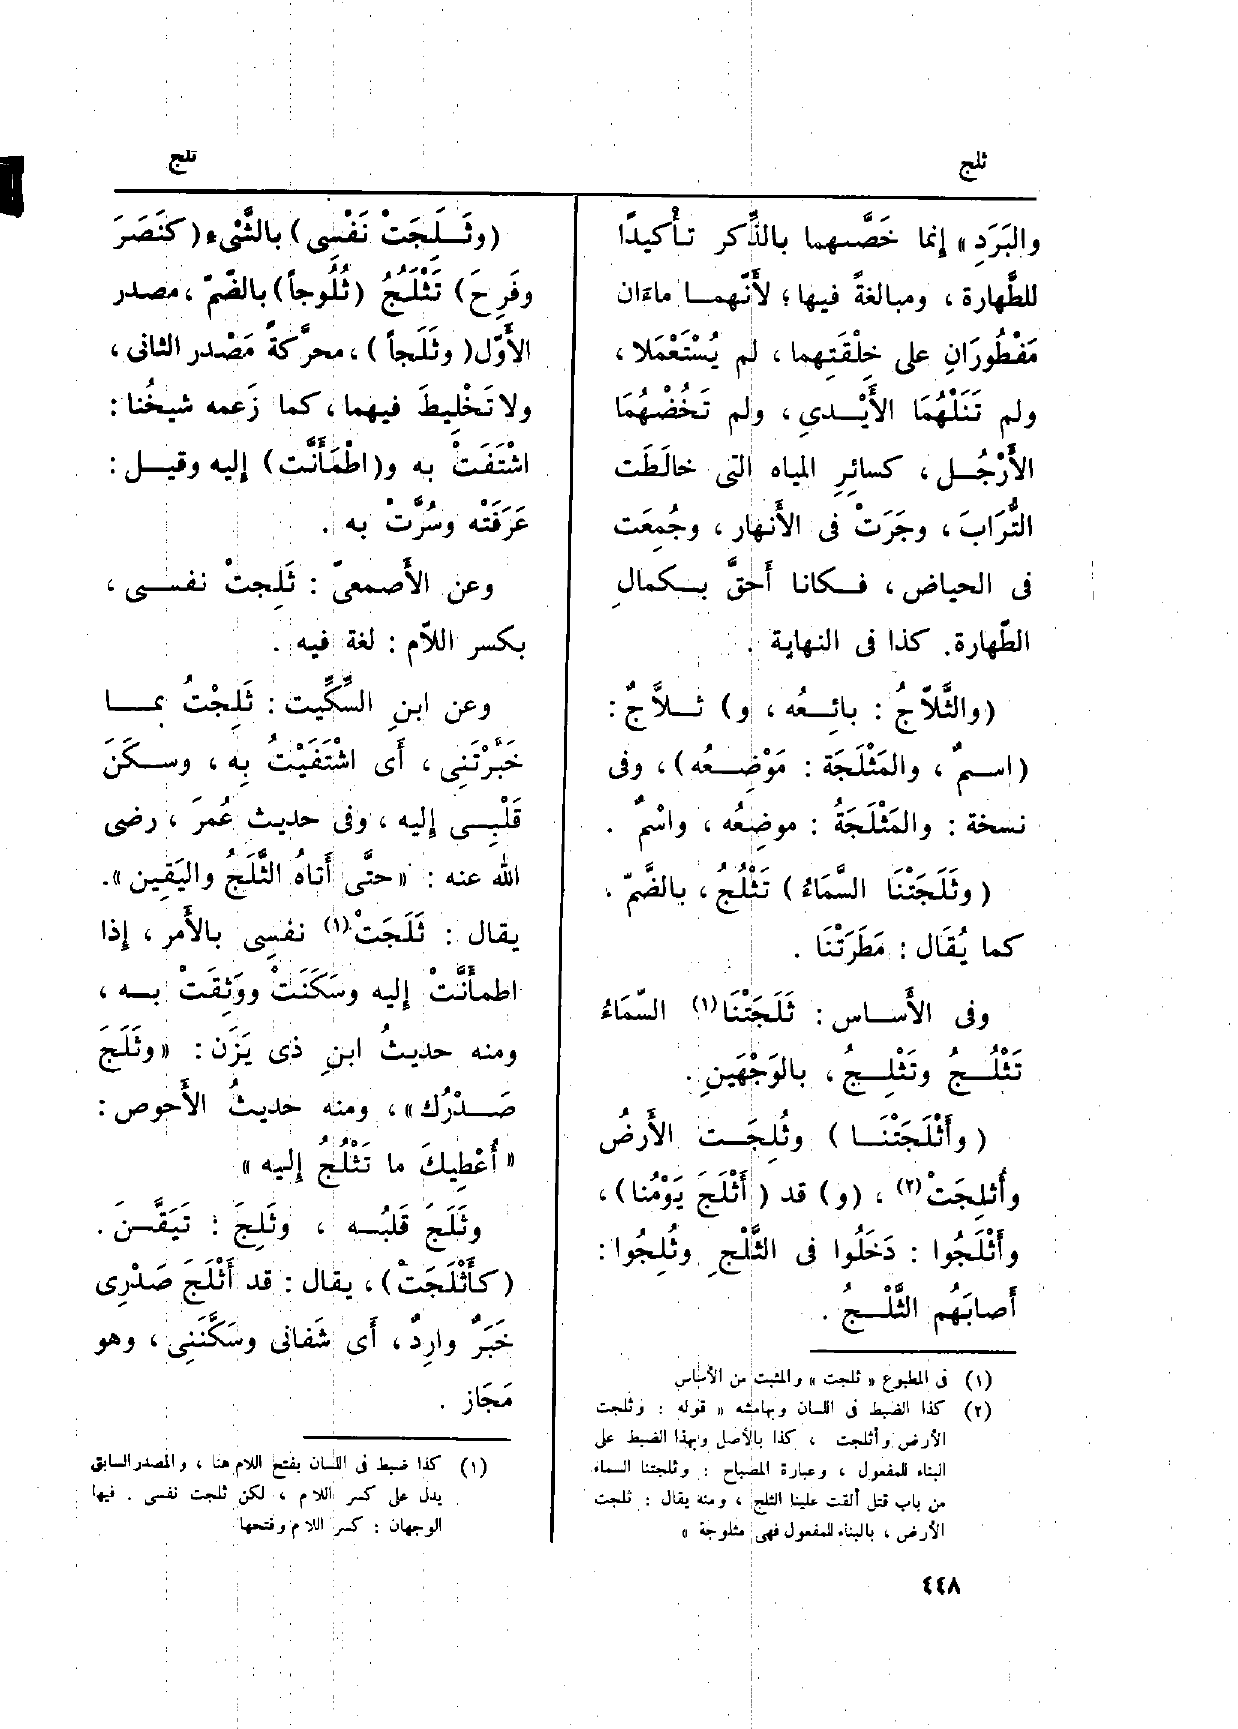 ثلج
ثلج
والبَرَدِ» إنما خَصَّهما بالذِّكر تأْكيدًا
للطَّهارة ، ومبالغةً فيها ؛ لأَنَّهما ماءَان
مَفْطُورَانِ على خِلْقَتِهما ، لم يُسْتَعْمَلا ،
ولم تَنَلْهُمَا الأَيْدِي ، ولم تَخُضْهُمَا
الأَرْجُل ، كسائِرِ المياه التى خالَطَت
التُّرَابَ ، وجَرَتْ فى الأَنهار ، وجُمِعَت
فى الحياض ، فكانا أَحَقَّ بكمالِ
الطَّهارة. كذا فى النهاية .
(والثَّلاَّجُ : بائعُه ، و) ثلاَّجٌ :
(اسمٌ ، والمَثْلَجَة : مَوْضِعُه) ، وفى
نسخة : والمَثْلَجَةُ : موضِعُه ، واسْمٌ .
(وثَلَجَتْنَا السَّمَاءُ) تَثْلُجُ ، بالضّمّ .
كما يُقَال : مَطَرَتْنَا .
وفى الأَساس : ثَلَجَتْنَا(١) السَّمَاءُ
تَثْلُجُ وتَثْلِجُ ، بالوَجْهَينِ .
(وأَثْلَجَتْنَا) وثُلِجَت الأَرضُ
وأُثلِجَتْ(٢) ، (و) قد (أَثْلَجَ يَوْمُنا) ،
وأَثْلَجُوا : دَخَلُوا فى الثَّلْجِ وثُلِجُوا :
أَصابَهُم الثَّلْجُ .
(١) فى المطبوع « ثلجت » والمثبت من الأساس
(٢) كذا الضبط فى اللسان وبهامشه « قوله : وثلجت
الأرض وأثلجت ، كذا بالأصل وبهذا الضبط على
البناء للمفعول ، وعبارة المصباح : وثلجتنا السماء
من باب قتل ألقت علينا الثلج ، ومنه يقال : ثلجت
الأرض ، بالبناء للمفعول فهى مثلوجة »
(وثَلَجَتْ نَفْسِى) بالشَّىْءِ (كنَصَرَ
وفَرِحَ) تَثْلُجُ (ثُلُوجاً) بالضّمّ ، مصدر
الأَوّل (وثَلَجاً) ، محرَّكةً مَصْدر الثانى ،
ولا تَخْلِيطَ فيهما ، كما زَعمه شيخُنا :
اشْتَفَتْ به و(اطْمَأَنَّت) إليه وقيل :
عَرَفَتْه وسُرَّتْ به .
وعن الأَصمعىّ : ثَلِجتْ نفسى ،
بكسر اللاّم : لغة فيه .
وعن ابنِ السِّكِّيت : ثَلِجْتُ بما
خَبَّرْتَنِى ، أَى اشْتَفَيْتُ بِه ، وسكَنَ
قَلْبِى إليه ، وفى حديث عُمرَ ، رضى
الله عنه : «حتَّى أَتاهُ الثَّلَجُ واليَقِين».
يقال : ثَلَجَتْ(١) نفسِى بالأَمر ، إذا
اطمأَنَّتْ إليه وسَكَنَتْ ووَثِقَتْ به ،
ومنه حديثُ ابنِ ذى يَزَن : «وثَلَجَ
صَدْرُك» ، ومنه حديثُ الأَحوص :
«أُعْطِيكَ ما تَثْلُجُ إليه»
وثَلَجَ قَلبُه ، وثَلِجَ : تَيَقَّنَ .
(كأَثْلَجَتْ) ، يقال : قد أَثْلَجَ صَدْرِى
خَبَرٌ وارِدٌ ، أَى شَفانى وسَكَّنَنِى ، وهو
مَجَاز .
(١) كذا ضبط فى اللسان بفتح اللام هنا ، والمصدر السابق
يدل على كسر اللام ، لكن ثلجت نفسى . فيها
الوجهان : كسر اللام وفتحها
٤٤٨